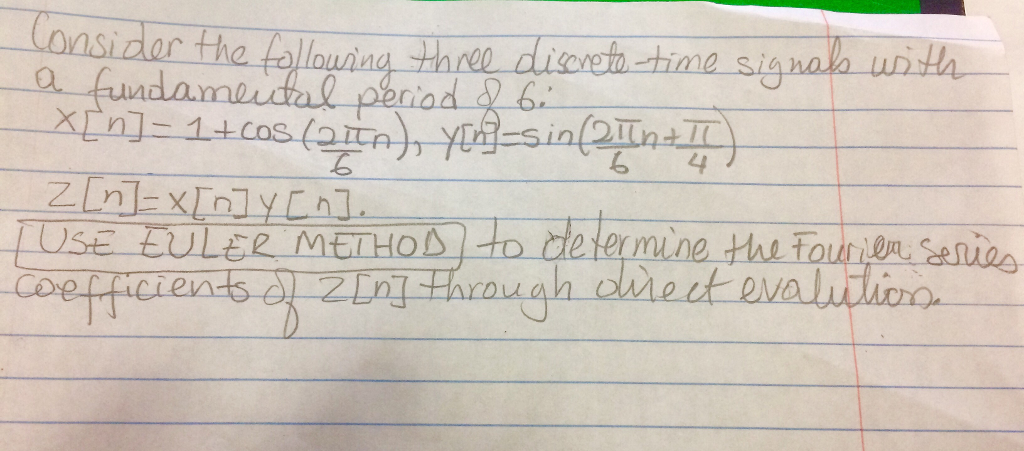 Consider the following three discrete-time signals with
a fundamental period of 6:
x[n] = 1 + cos(2πn/6), y[n] = sin(2πn/6 + π/4)
z[n] = x[n] y[n].
[USE EULER METHOD] to determine the Fourier Series
coefficients of z[n] through direct evalution.